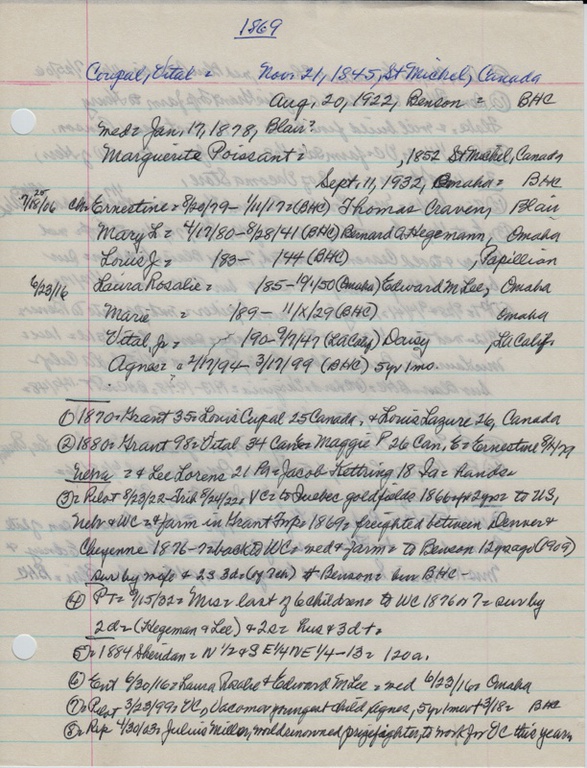 1869
Coupal, Vital = Nov. 21, 1845, St Michel, Canada
Aug, 20, 1922, Benson = BHC
med = Jan, 17, 1878, Blair?
Marguerite Poissant = , 1852 St Michel, Canada
Sept. 11, 1932, Omaha = BHC
7/18/06 Ch = Ernestine = 8/20/79 - 1/11/17 = (BHC) Thomas Craven, Blair
Mary L = 4/17/80 - 8/28/41 (BHC) Bernard A. Hegemann, Omaha
Louis J = 183 - 144 (BHC) , Papillion
6/23/16 Laura Rosalie = 185 - 1/1/50 (Omaha) Edward M Lee, Omaha
Marie = 189 - 11/X/29 (BHC) Omaha
Vital, Jr = 190 - 9/7/47 (La Calif) Daisy , La Calif.
Agnes = 2/17/94 - 3/17/99 (BHC) 5yr 1mo.
① 1870 = Grant 35 = Louis Cupal 25 Canada, & Louis Lazure 26, Canada
② 1880 = Grant 98 = Vital 34 Can = Maggie P 26 Can, = Ernestine 8/ /79
= & Lee Lorens 21 = Jacob Kettring 18 Ia = hands =
③ = Pilot 8/23/22 = Trib 8/24/22 = VC = to Quebec goldfields 1866 = 2yrs = to US,
Neb & WC = & farm in Grant Twp 1869 = freighted between Denver &
Cheyenne 1876-7 = back to WC = med & farm = to Benson 12yrs ago (1909)
sur by wife & 2s 3d = (of ) # Benson = bur BHC -
④ PT = 9/15/32 = Mrs = last of 6 children = to WC 1876 or 7 = sur by
2d = (Hegeman & Lee) & 2s = hus & 3d =
5 = 1884 Sheridan = N 1/2 & S E 1/4 NE 1/4 - 13 = 120a.
⑥ Ent 6/30/16 = Laura Rosalie & Edward M Lee = med 6/23/16 = Omaha
⑦ = Pilot 3/23/99 = VC, Vacoma = youngest child, Agnes, 5yr 1mo + 3/18 = BHC
⑧ = Rep 4/30/03 = Julius Miller, world renowned prizefighter, to work for VC this year,